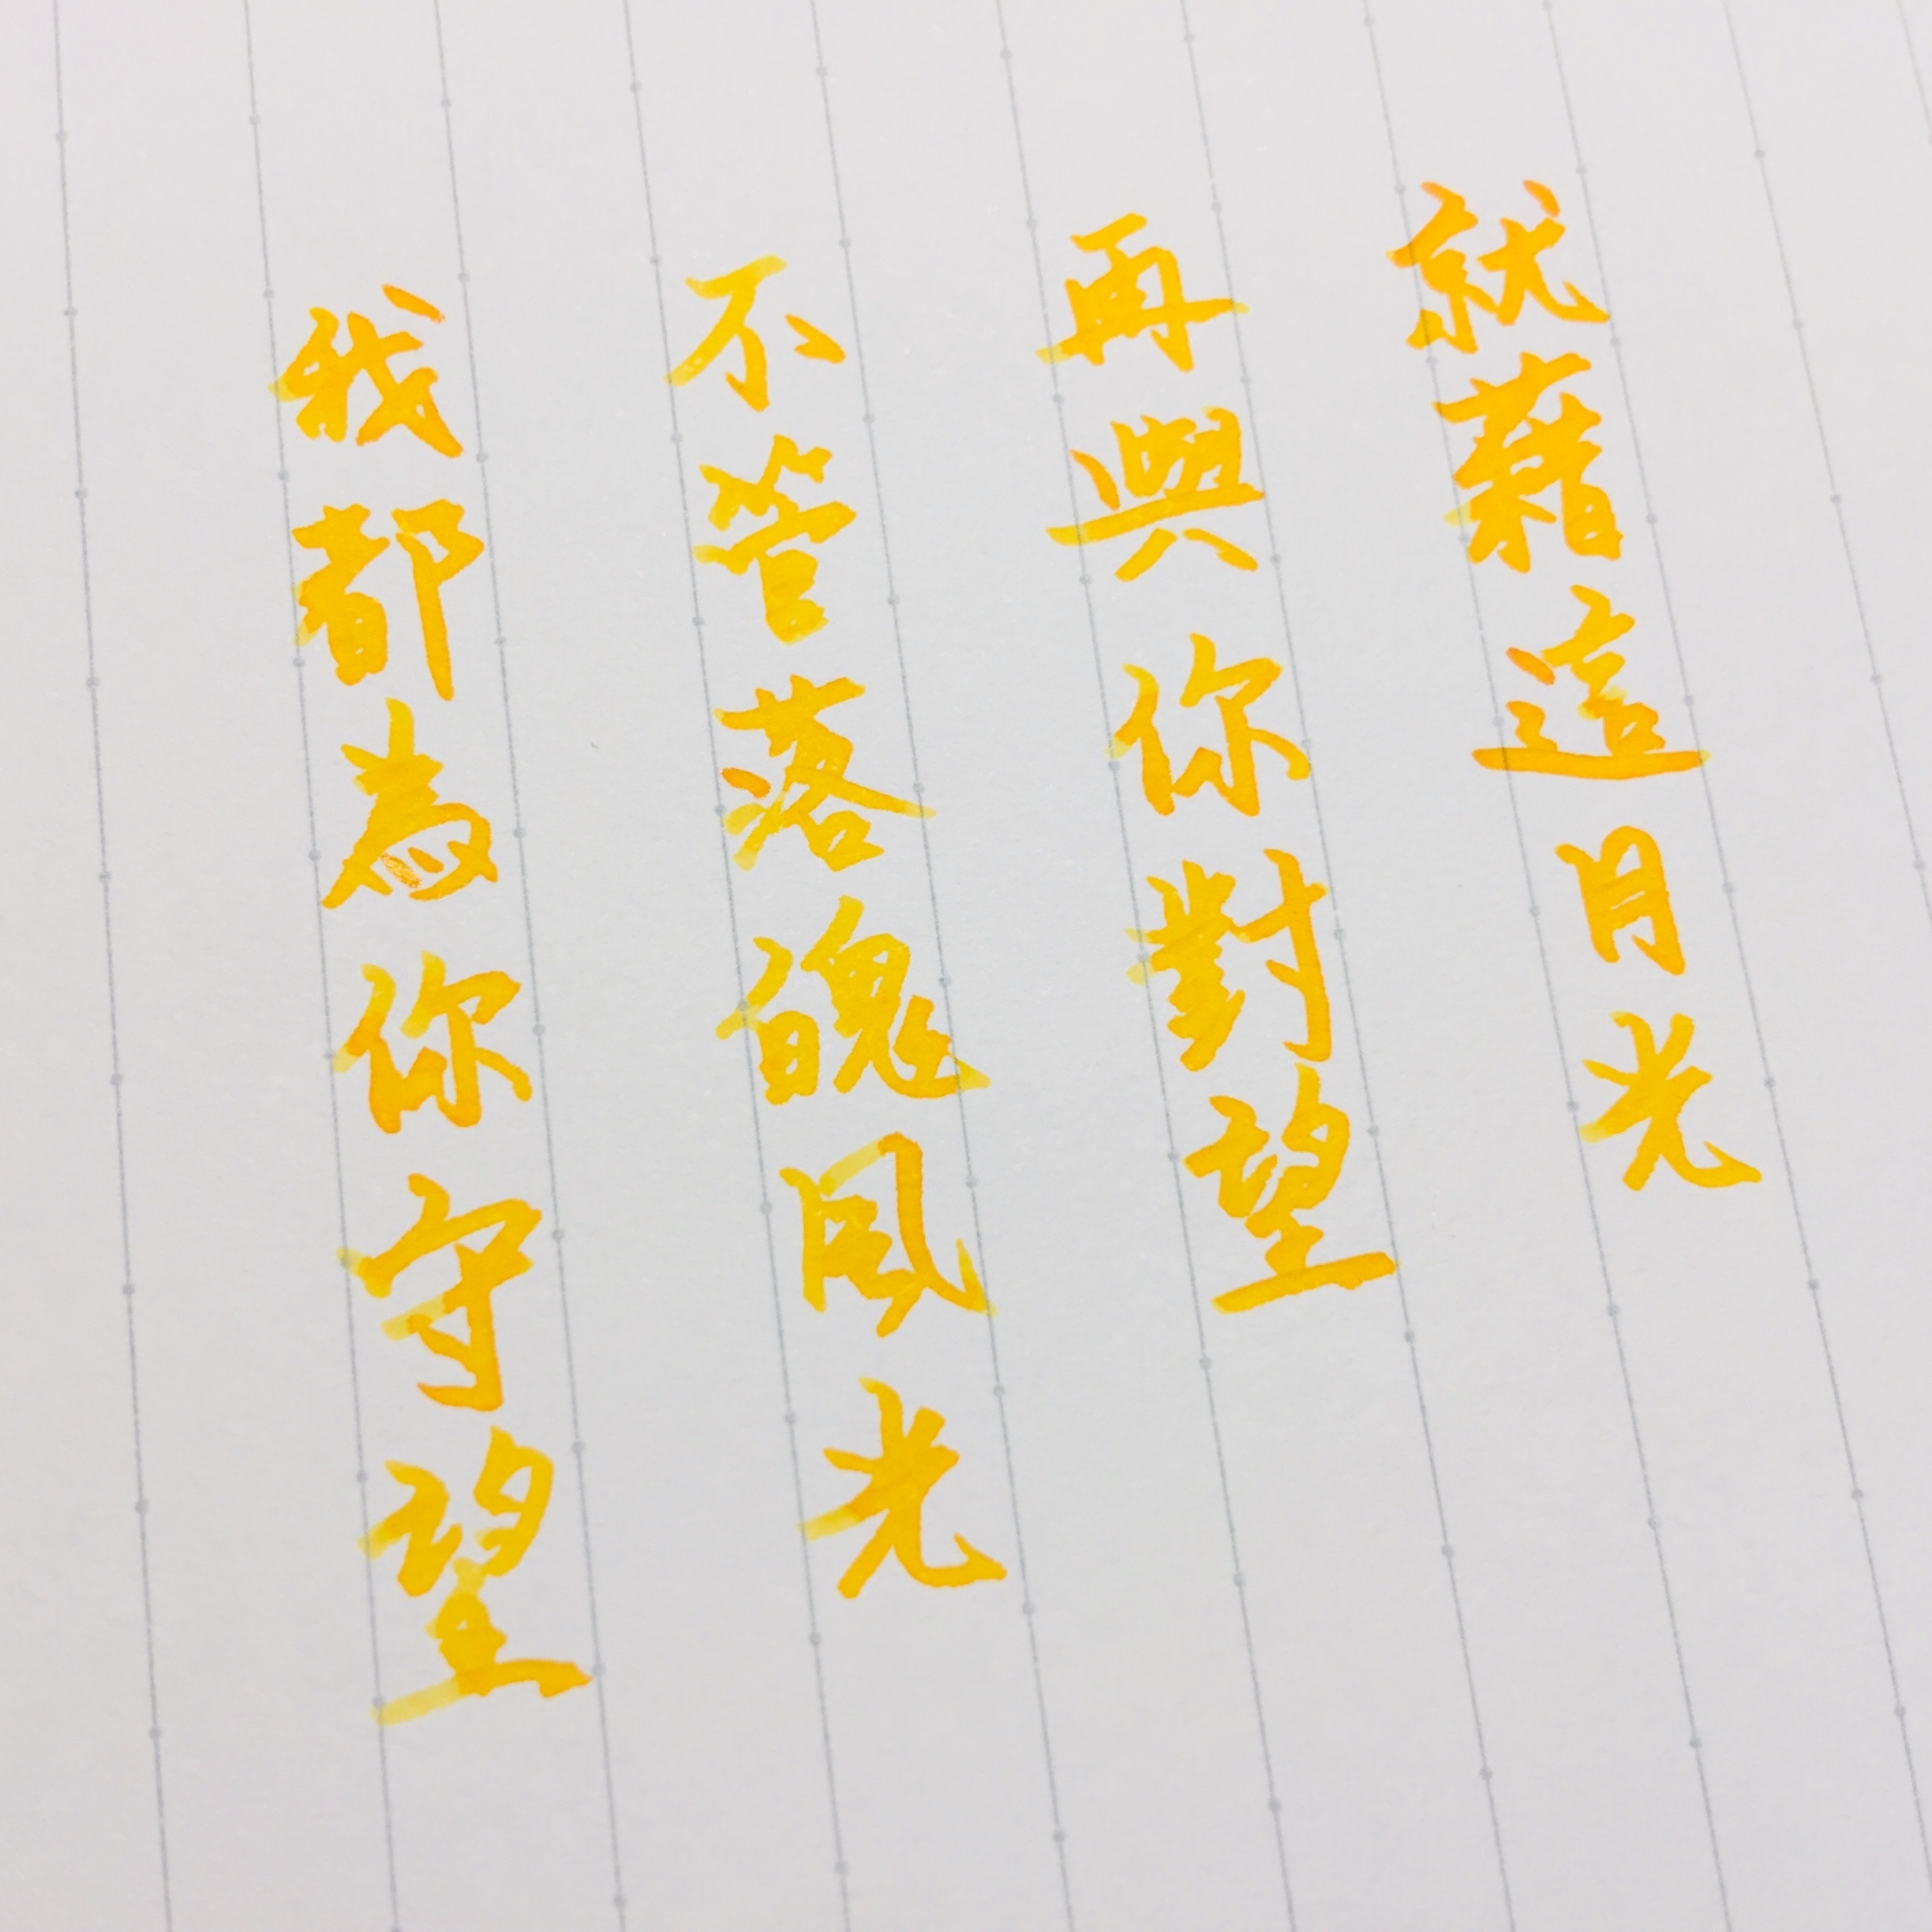 就藉這月光
再與你對望
不管落魄風光
我都為你守望